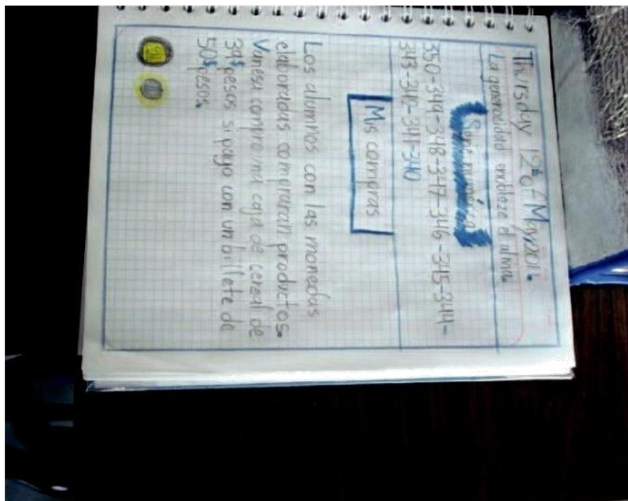 Thursday 12th of May 2016.
La generosidad endulza el alma.
Serie numérica
350-349-348-347-346-345-344-
343-342-341-340
Mis compras
Los alumnos con las monedas
elaboradas compraran productos.
Vanesa compro una caja de cereal de
39$ pesos si pago con un billete de
50$ pesos.